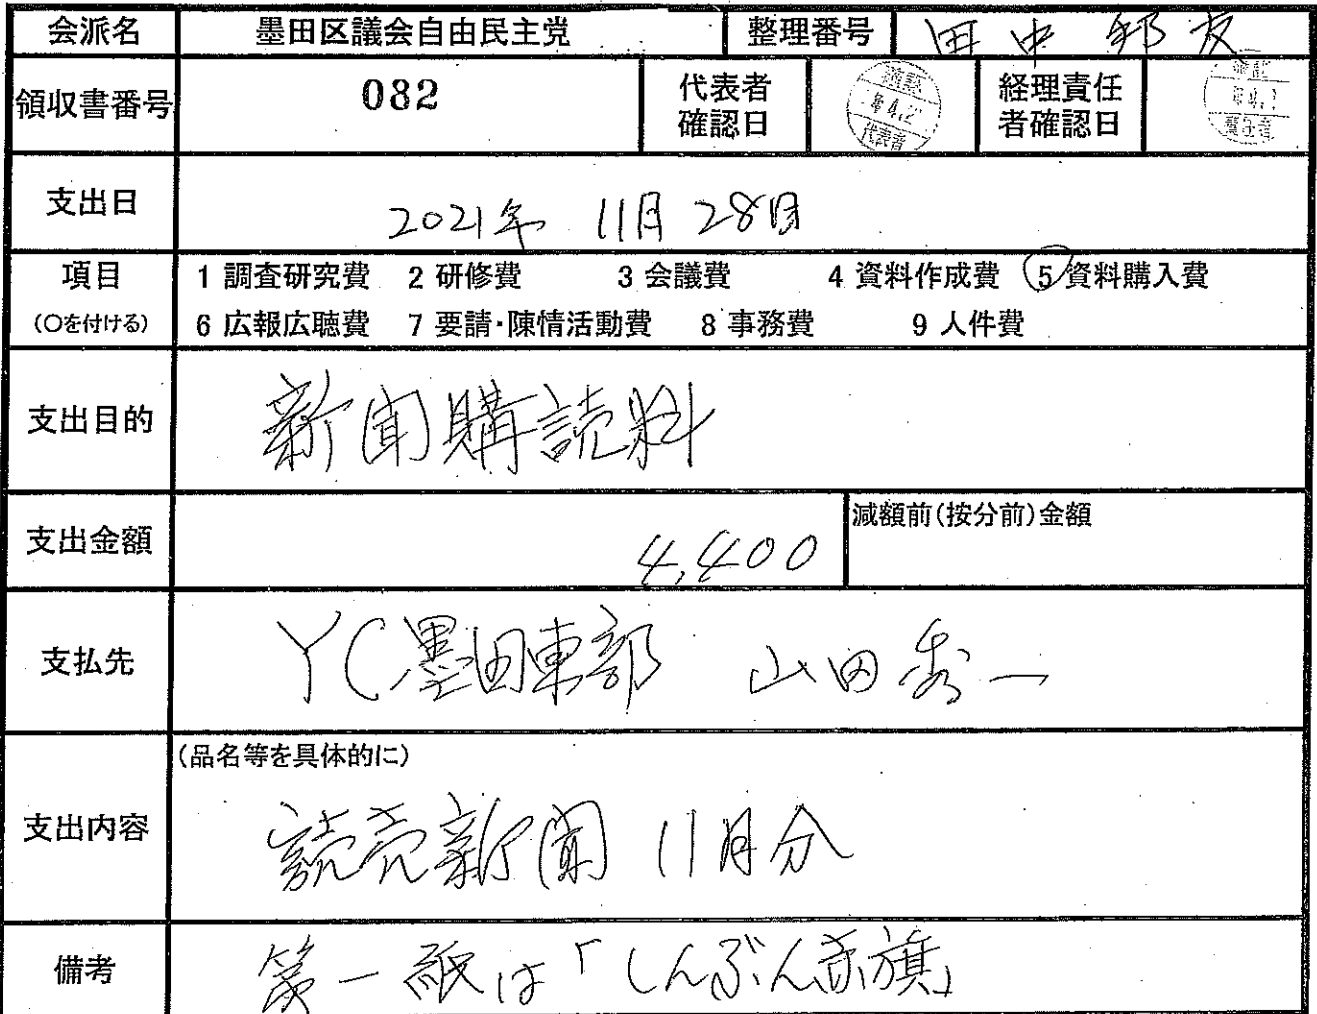 会派名 墨田区議会自由民主党 整理番号 田中邦友
領収書番号 082 代表者確認日 確認 4.2 代表者 経理責任者確認日 確認 4. 責任者
支出日 2021年 11月 28日
項目 1 調査研究費 2 研修費 3 会議費 4 資料作成費 5 資料購入費
(○を付ける) 6 広報広聴費 7 要請・陳情活動費 8 事務費 9 人件費
支出目的 新聞購読料
支出金額 4,400 減額前(按分前)金額
支払先 YC墨田東部 山田秀一
(品名等を具体的に)
支出内容 読売新聞 11月分
備考 第一紙は「しんぶん赤旗」